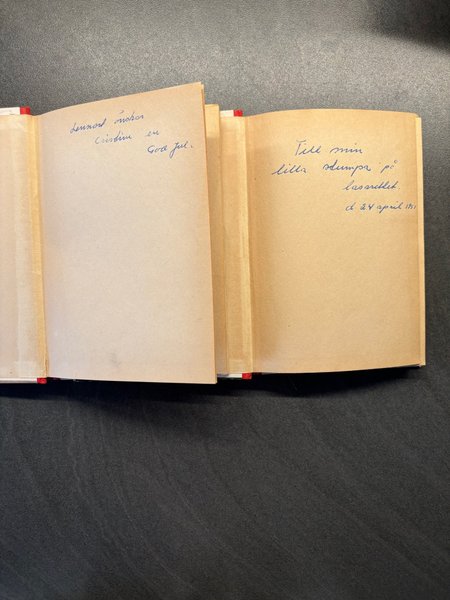 Lennart önskar
Cristine en
God Jul.
Till min
lilla stumpa på
lasarettet.
d. 24 april 1951